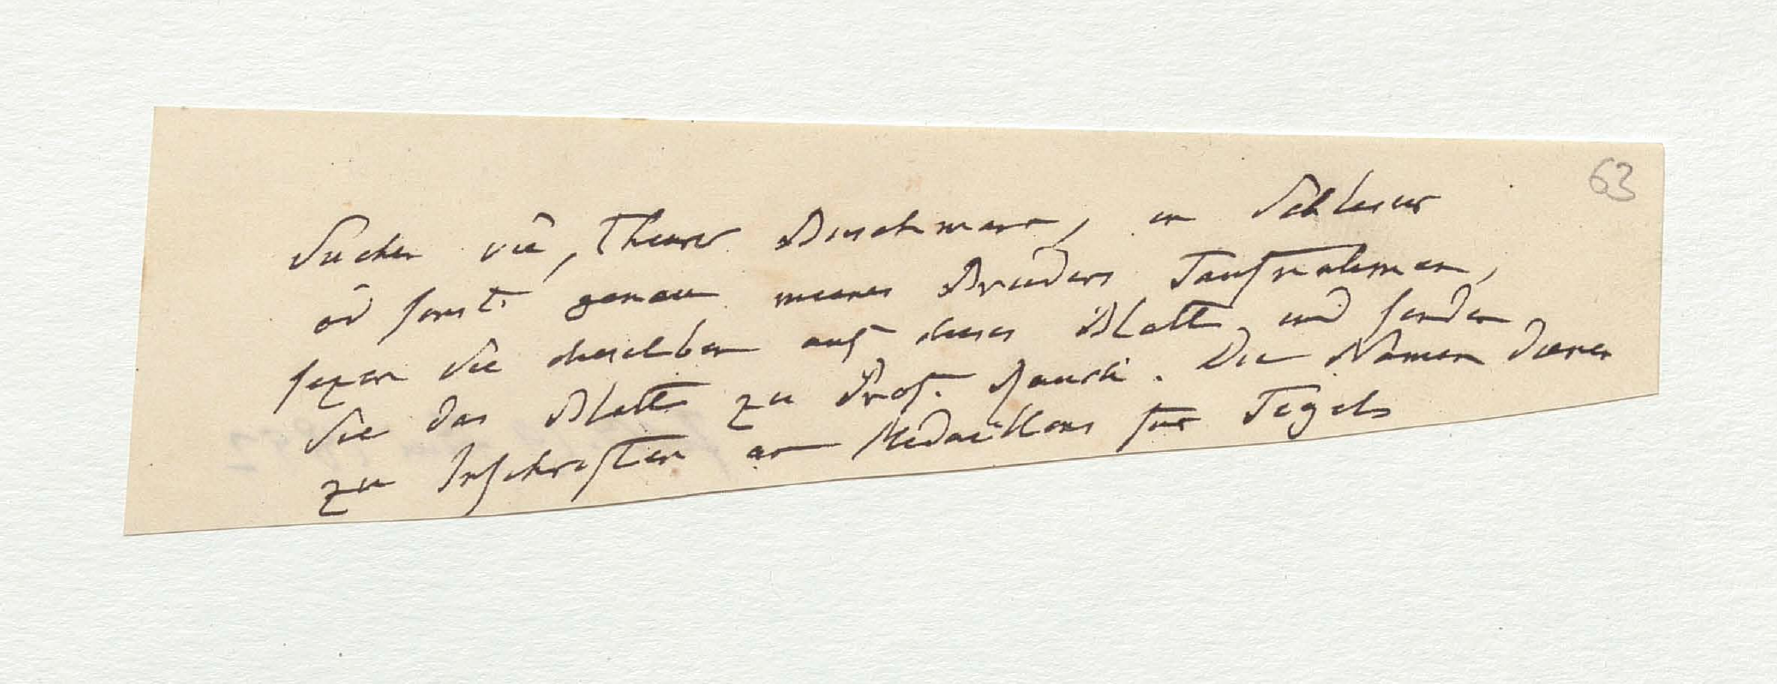 63
Suchen Sie, Theurer Buschmann, in Schlesier
od sonst genau meines Bruders Taufnahmen,
sezen Sie dieselben auf dieses Blatt und senden
Sie das Blatt zu Prof. Rauch. Die Namen dienen
zu Inschriften an Medaillons für Tegels